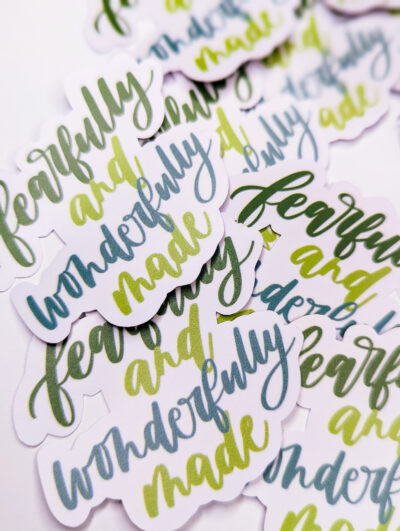 made
wonderfully
made
fearfully
and
wonderfully
made
fearfully
and
wonderfully
made
fearfully
and
wonderfully
made
fearfully
and
wonderfully
made